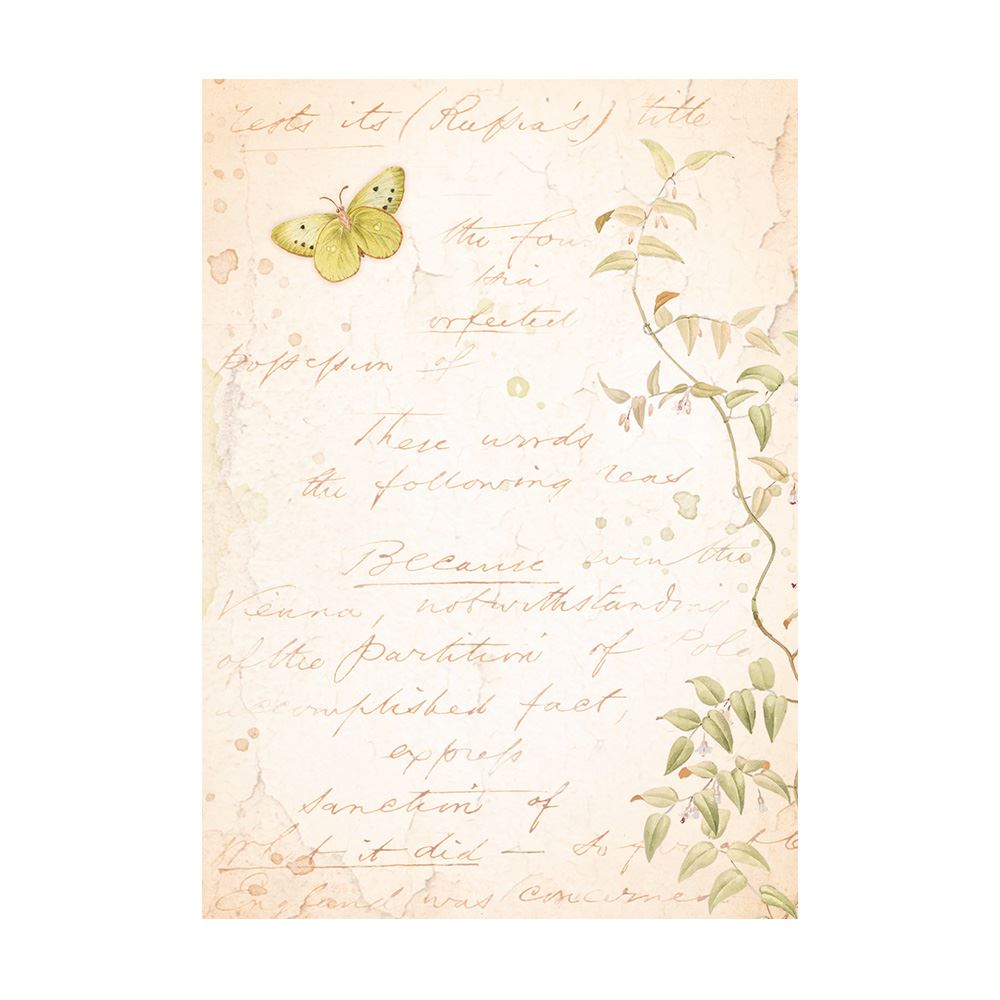 rests its (Russia's) title
the fou
sia
orfected
possession of
These words
the following reas
Because even the
Vienna, notwithstanding
of the partition of Pola
accomplished fact,
express
sanction of
What it did — so far as
England was concerned